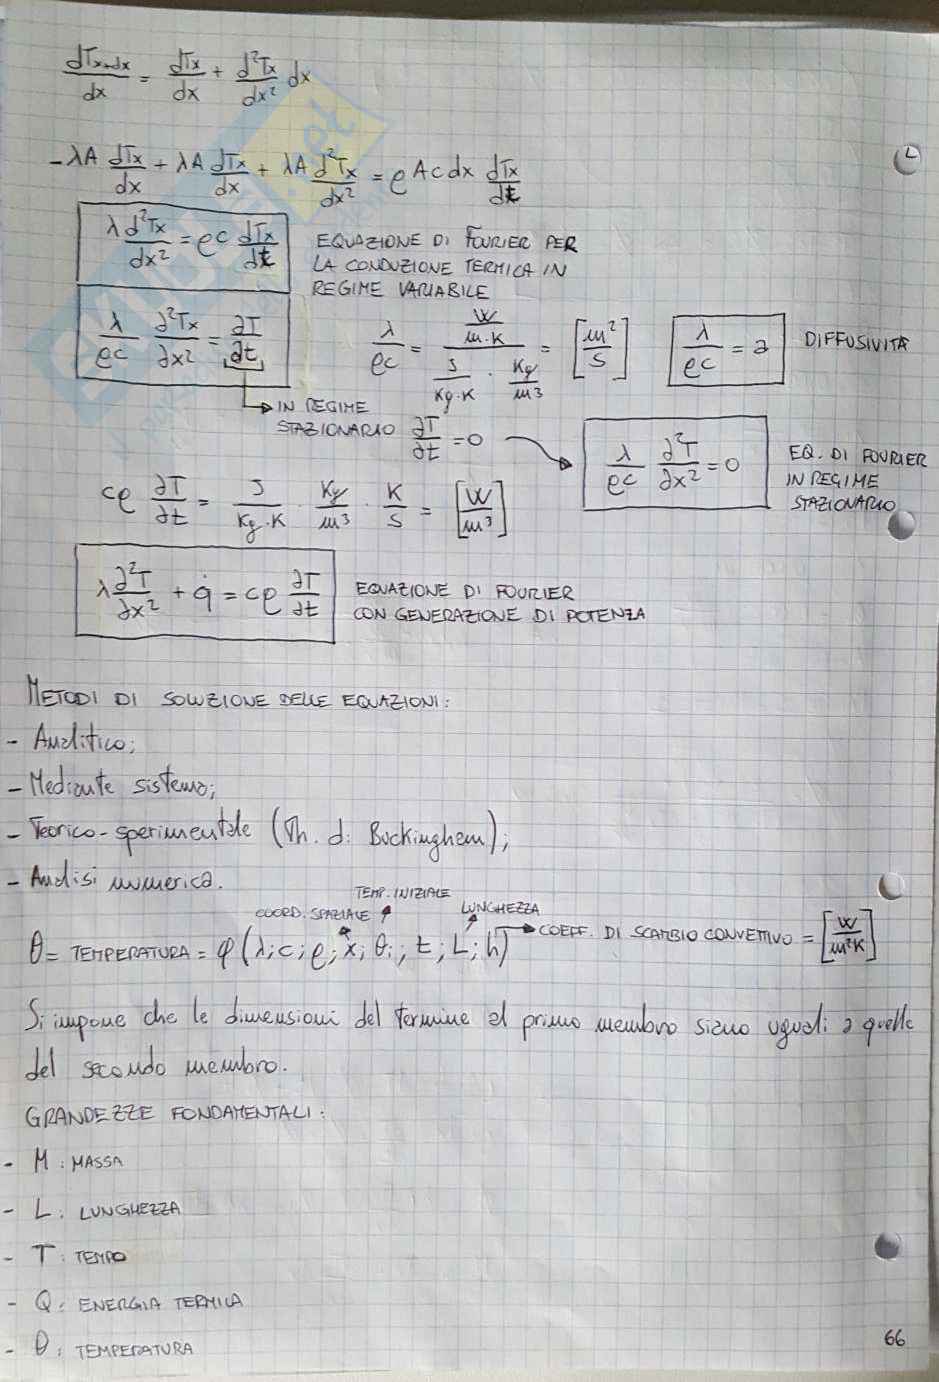 dTx+dx/dx = dTx/dx + d²Tx/dx² dx
-λA dTx/dx + λA dTx/dx + λA d²Tx/dx² = ρAcdx dTx/dt
λ d²Tx/dx² = ρc dTx/dt EQUAZIONE DI FOURIER PER
LA CONDUZIONE TERMICA IN
REGIME VARIABILE
λ/ρc ∂²Tx/∂x² = ∂T/∂t λ/ρc = W/m·K / (J/Kg·K · Kg/m³) = [m²/s] λ/ρc = a DIFFUSIVITÀ
→ IN REGIME
STAZIONARIO ∂T/∂t = 0 → λ/ρc ∂²T/∂x² = 0 EQ. DI FOURIER
IN REGIME
STAZIONARIO
cρ ∂T/∂t = J/Kg·K · Kg/m³ · K/s = [W/m³]
λ ∂²T/∂x² + q̇ = cρ ∂T/∂t EQUAZIONE DI FOURIER
CON GENERAZIONE DI POTENZA
METODI DI SOLUZIONE DELLE EQUAZIONI:
- Analitico;
- Mediante sistema;
- Teorico-sperimentale (Th. di Buckinghem);
- Analisi numerica.
TEMP. INIZIALE
COORD. SPAZIALE LUNGHEZZA
θ = TEMPERATURA = φ (λ; c; ρ; x; θi; t; L; h) → COEFF. DI SCAMBIO CONVETTIVO = [W/m²K]
Si impone che le dimensioni del termine al primo membro siano uguali a quelle
del secondo membro.
GRANDEZZE FONDAMENTALI:
- M: MASSA
- L: LUNGHEZZA
- T: TEMPO
- Q: ENERGIA TERMICA
- θ: TEMPERATURA
66